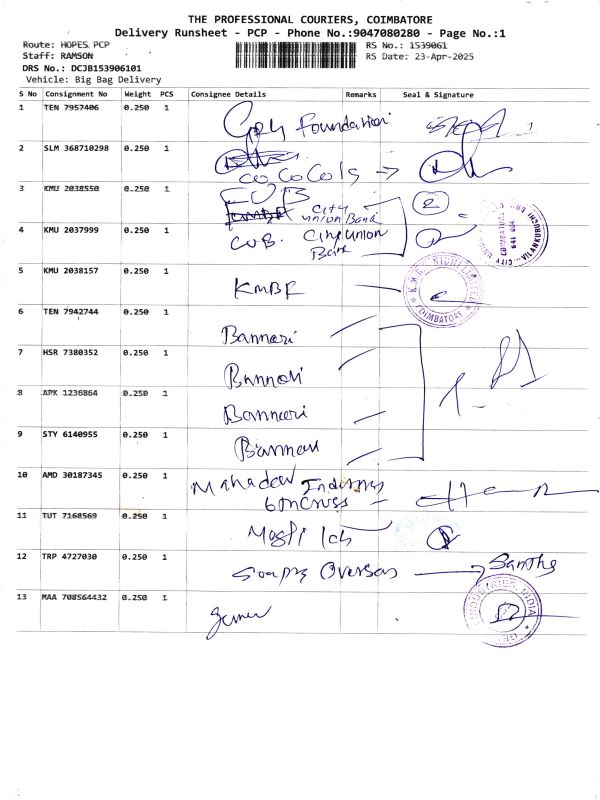 THE PROFESSIONAL COURIERS, COIMBATORE
Delivery Runsheet - PCP - Phone No.:9047080280 - Page No.:1
Route: HOPES PCP
RS No.: 1539061
Staff: RAMSON
RS Date: 23-Apr-2025
DRS No.: DCJB153906101
Vehicle: Big Bag Delivery
S No Consignment No Weight PCS Consignee Details Remarks Seal & Signature
1 TEN 7957406 0.250 1 Foundation
2 SLM 368710298 0.250 1 CoCoCols →
3 KMU 2038550 0.250 1 City Union Bank
4 KMU 2037999 0.250 1 CUB. City Union Bank
5 KMU 2038157 0.250 1 KMBR
6 TEN 7942744 0.250 1 Bannari
7 HSR 7380352 0.250 1 Bannari
8 APK 1236864 0.250 1 Bannari
9 STY 6140955 0.250 1 Bannari
10 AMD 30187345 0.250 1 Mahadev
11 TUT 7168569 0.250 1
12 TRP 4727030 0.250 1 Overseas
13 MAA 708564432 0.250 1
COIMBATORE